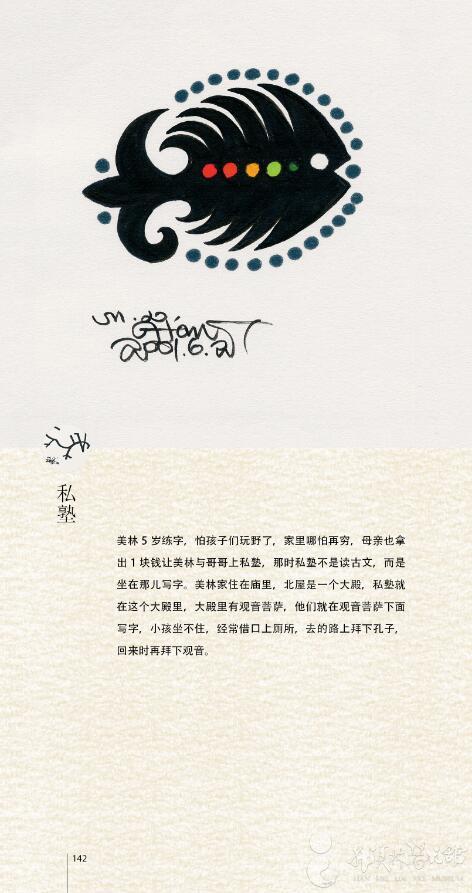 私塾
美林 5 岁练字，怕孩子们玩野了，家里哪怕再穷，母亲也拿
出 1 块钱让美林与哥哥上私塾，那时私塾不是读古文，而是
坐在那儿写字。美林家住在庙里，北屋是一个大殿，私塾就
在这个大殿里，大殿里有观音菩萨，他们就在观音菩萨下面
写字，小孩坐不住，经常借口上厕所，去的路上拜下孔子，
回来时再拜下观音。
142